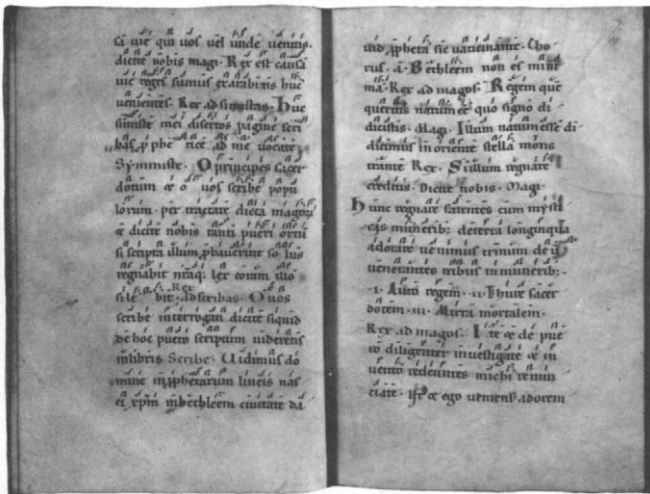 sa uie qui uos uel unde uenitis.
dicite nobis magi. Rex est causa
uie reges sumus ex arabitis huc
uenientes. Rex ad simistas. Huc
simiste mei disertos pagine scri
bas pphe tice ad me uocate
Symmiste. O principes sacer
dotum & o uos scribe popu
lorum. per tractate dicta magoru
& dicite nobis tanti pueri ortu
si scripta illum phauerint so lus
regnabit lex eorum illo
sile bit. Rex ad scribas. O uos
scribe interrogati dicite siquid
de hoc puero scriptum uideritis
inlibris Scribe. Uidimus do
mine inpphetarum lineis nas
ci xpm inbethleem ciuitate da
uid ppheta sic uaticinante. Cho
rus. a. Bethleem non es mini
ma. Rex ad magos. Regem que
queritis natum ee quo signo di
dicistis. Magi. Illum natum esse di
dicimus in oriente stella mons
trante Rex. Si illum regnare
creditis. Dicite nobis. Magi.
Hunc regnare fatentes cum mysti
cis munerib; deterra longinqua
adorare uenimus trinum deu
uenerantes tribus in munerib;.
.i. Auro regem. .ii. Thure sacer
dotem. .iii. Mirra mortalem.
Rex ad magos. Ite & de pue
ro diligenter inuestigate & in
uento redeuntes michi renun
ciate. & ego ueniens adorem